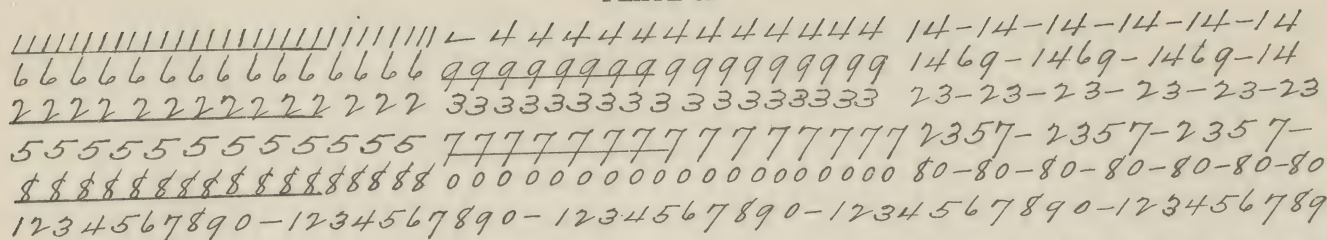 1111111111111111111111111111111111 - 4 4 4 4 4 4 4 4 4 4 4 4 4 14-14-14-14-14-14
6 6 6 6 6 6 6 6 6 6 6 6 6 6 6 9999999999999999 1469-1469-1469-14
2 2 2 2 2 2 2 2 2 2 2 2 2 2 333333333333333 23-23-23-23-23-23
5 5 5 5 5 5 5 5 5 5 5 5 5 5 7 7 7 7 7 7 7 7 7 7 7 7 7 7 7 2357-2357-2357-
8 8 8 8 8 8 8 8 8 8 8 8 8 8 8 8 8 0 0 0 0 0 0 0 0 0 0 0 0 0 0 0 0 0 0 0 80-80-80-80-80-80-80
1234567890-1234567890-1234567890-1234567890-123456789